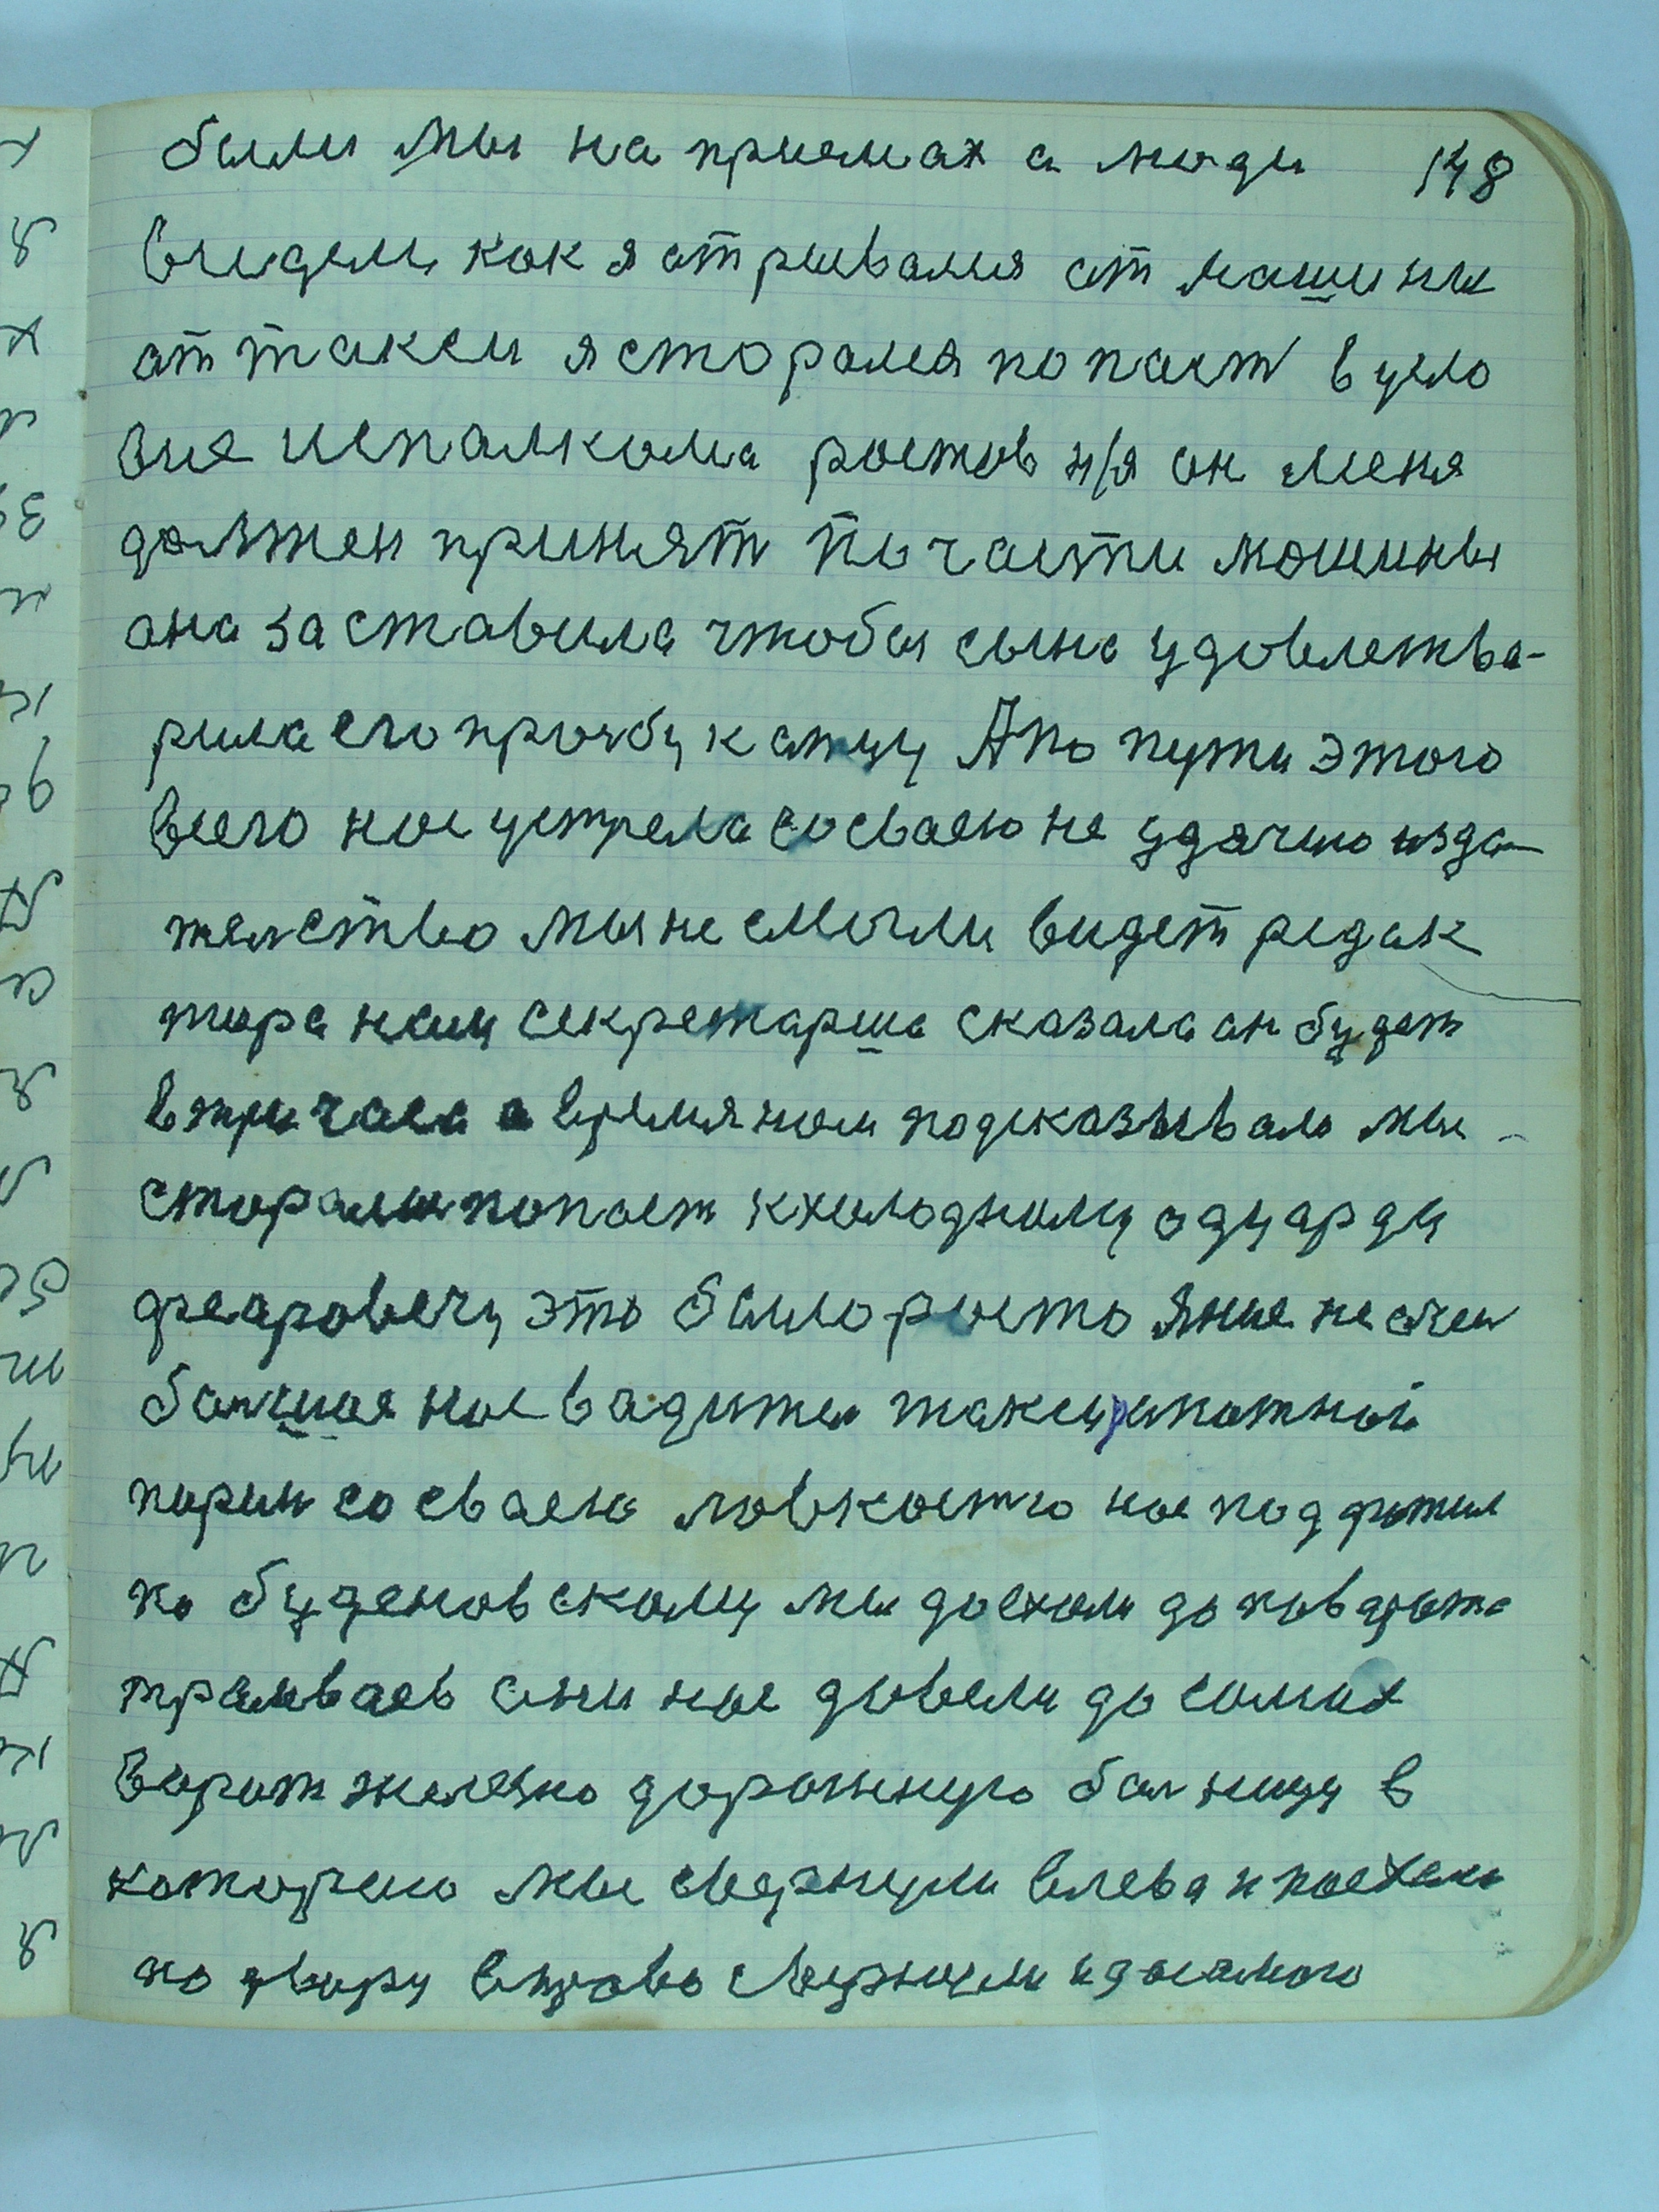 были мы на приемах а люди 148
видели как я отрывался от машины
от такси я сторался попаст в усло
вие исполкома ростов н/д он меня
должен принят по части мошины
она заставила чтобы сына удовлетва-
рила его прозбу к отцу А по пути этого
всего нас устрела со сваею не удачию изда
телство мы не смогли видет редак
тора нам секретарша сказала он будет
в три часа а время нам подсказывало мы
сторалис попаст к холодному эдуарду
федровечу это было росто яние не очен
болшое нас вадител такси опытной
парин со сваею ловкостю нас подфотил
по буденовскому мы доехали до поварота
трамваев они нас довели до самых
ворот железно дорожную болницу в
которую мы свернули влева и поехали
по двору вправо свернули и до самого